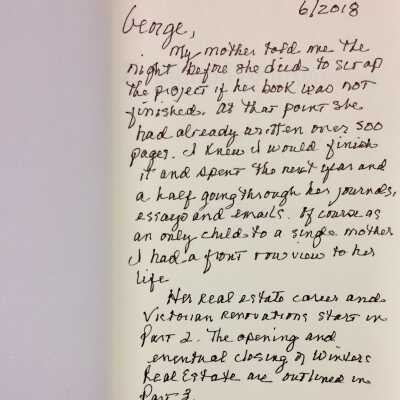 6/2018
George,
My mother told me the
night before she died to scrap
the project if her book was not
finished. At that point she
had already written over 500
pages. I knew I would finish
it and spent the next year and
a half going through her journals,
essays and emails. Of course as
an only child to a single mother
I had a front row view to her
life.
Her real estate career and
Victorian renovations start in
Part 2. The opening and
eventual closing of Winters
Real Estate are outlined in
Part 3.